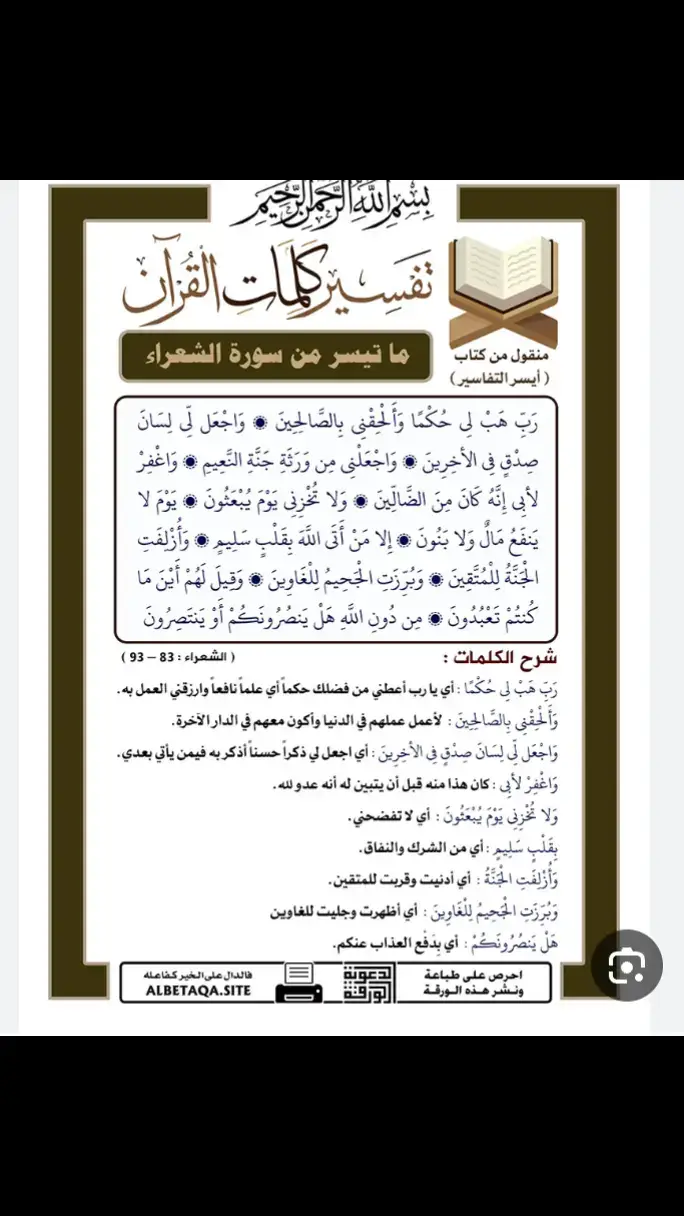 بِسْمِ اللَّهِ الرَّحْمَنِ الرَّحِيمِ
تَفْسِيرُ كَلِمَاتِ الْقُرْآنِ
منقول من كتاب
( أيسر التفاسير )
ما تيسر من سورة الشعراء
رَبِّ هَبْ لِي حُكْمًا وَأَلْحِقْنِي بِالصَّالِحِينَ ۞ وَاجْعَل لِّي لِسَانَ
صِدْقٍ فِي الآخِرِينَ ۞ وَاجْعَلْنِي مِن وَرَثَةِ جَنَّةِ النَّعِيمِ ۞ وَاغْفِرْ
لأَبِي إِنَّهُ كَانَ مِنَ الضَّالِّينَ ۞ وَلا تُخْزِنِي يَوْمَ يُبْعَثُونَ ۞ يَوْمَ لا
يَنفَعُ مَالٌ وَلا بَنُونَ ۞ إِلا مَنْ أَتَى اللَّهَ بِقَلْبٍ سَلِيمٍ ۞ وَأُزْلِفَتِ
الْجَنَّةُ لِلْمُتَّقِينَ ۞ وَبُرِّزَتِ الْجَحِيمُ لِلْغَاوِينَ ۞ وَقِيلَ لَهُمْ أَيْنَ مَا
كُنتُمْ تَعْبُدُونَ ۞ مِن دُونِ اللَّهِ هَلْ يَنصُرُونَكُمْ أَوْ يَنتَصِرُونَ
شرح الكلمات : ( الشعراء : 83 – 93 )
رَبِّ هَبْ لِي حُكْمًا : أي يا رب أعطني من فضلك حكماً أي علماً نافعاً وارزقني العمل به.
وَأَلْحِقْنِي بِالصَّالِحِينَ : لأعمل عملهم في الدنيا وأكون معهم في الدار الآخرة.
وَاجْعَل لِّي لِسَانَ صِدْقٍ فِي الآخِرِينَ : أي اجعل لي ذكراً حسناً أذكر به فيمن يأتي بعدي.
وَاغْفِرْ لأَبِي : كان هذا منه قبل أن يتبين له أنه عدو لله.
وَلا تُخْزِنِي يَوْمَ يُبْعَثُونَ : أي لا تفضحني.
بِقَلْبٍ سَلِيمٍ : أي من الشرك والنفاق.
وَأُزْلِفَتِ الْجَنَّةُ : أي أدنيت وقربت للمتقين.
وَبُرِّزَتِ الْجَحِيمُ لِلْغَاوِينَ : أي أظهرت وجليت للغاوين
هَلْ يَنصُرُونَكُمْ : أي بِدَفع العذاب عنكم.
احرص على طباعة
ونشر هذه الورقة
الدعوية الورقة
فالدال على الخير كفاعله
ALBETAQA.SITE